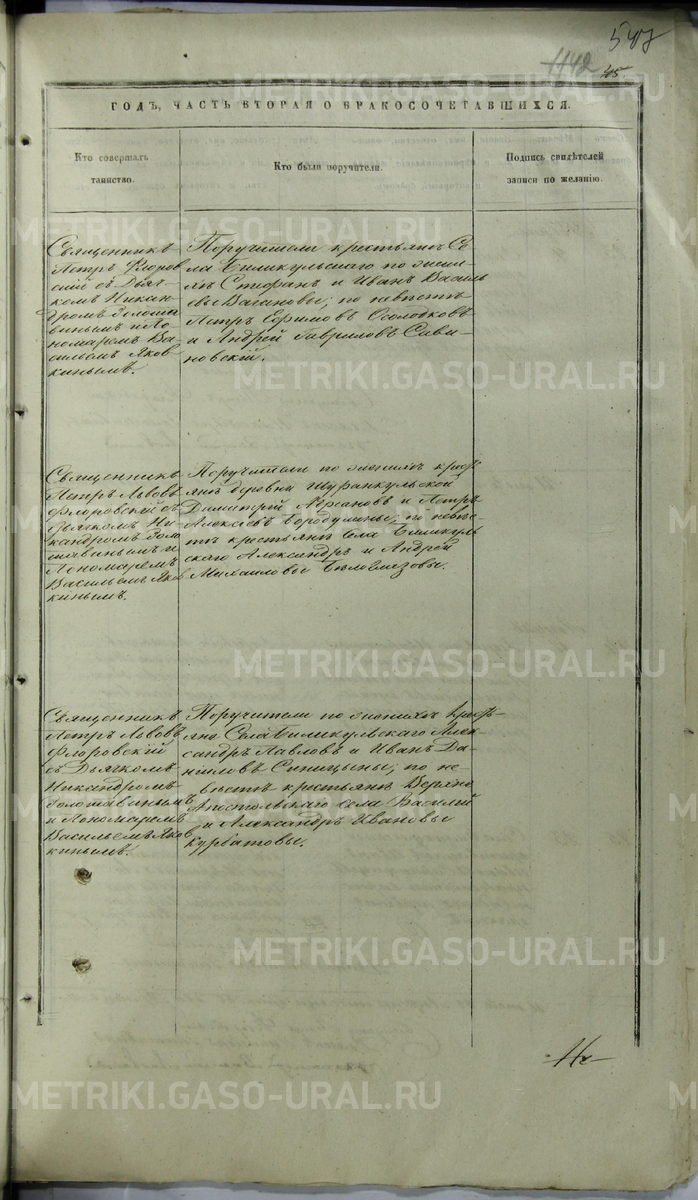 547
1142
45.
ГОДЪ, ЧАСТЬ ВТОРАЯ О БРАКОСОЧЕТАВШИХСЯ.
Кто совершалъ
таинство.
Кто были поручители.
Подпись свидѣтелей
записи по желанію.
Священникъ
Петръ Флоров
скій съ Дьяч-
комъ Никан-
дромъ Золота
винымъ и По
номаремъ Ва-
сильемъ Яков
кинымъ.
Поручители крестьянъ Се
ла Биликульскаго по жени
хѣ Стефанъ и Иванъ Василь
евы Вагановы; по невѣстѣ
Петръ Ефимовъ Осолодковъ
и Андрей Гавриловъ Сави-
новскій.
Священникъ
Петръ Львовъ
Флоровскій съ
Дьячкомъ Ни-
кандромъ Золо
тавинымъ и
Пономаремъ
Васильемъ Яков
кинымъ.
Поручители по женихѣ крес-
янъ деревни Шуранкульской
Димитрій и Петръ
Алексѣевъ Бородулины; по невѣс-
тѣ крестьянъ села Биликуль
скаго Александръ и Андрей
Михаиловы Белоглазовы.
Священникъ
Петръ Львовъ
Флоровскій
съ Дьячкомъ
Никандромъ
Золотавинымъ
и Пономаремъ
Васильемъ Яков
кинымъ.
Поручители по женихѣ крест-
яне Села Биликульскаго Алек
сандръ Павловъ и Иванъ Да-
ниловъ Синицыны; по не
вѣстѣ крестьянъ Верхно
Апостольскаго села Василій
и Александръ Ивановы
Курбатовы.
METRIKI.GASO-URAL.RU
METRIKI.GASO-URAL.RU
METRIKI.GASO-URAL.RU
METRIKI.GASO-URAL.RU
METRIKI.GASO-URAL.RU
METRIKI.GASO-URAL.RU
METRIKI.GASO-URAL.RU
METRIKI.GASO-URAL.RU